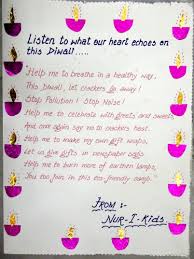 Listen to what our heart echoes on
this Diwali.....
Help me to breathe in a healthy way,
This diwali, let crackers go away!
Stop Pollution! Stop Noise!
Help me to celebrate with greets and sweets
And once again say no to crackers heat.
Help me to make my own gift wraps.
Let us give gifts in newspaper bags
Help me to burn more of earthen lamps,
You too join in this eco-friendly camp.
FROM :-
NUR-I-Kids.